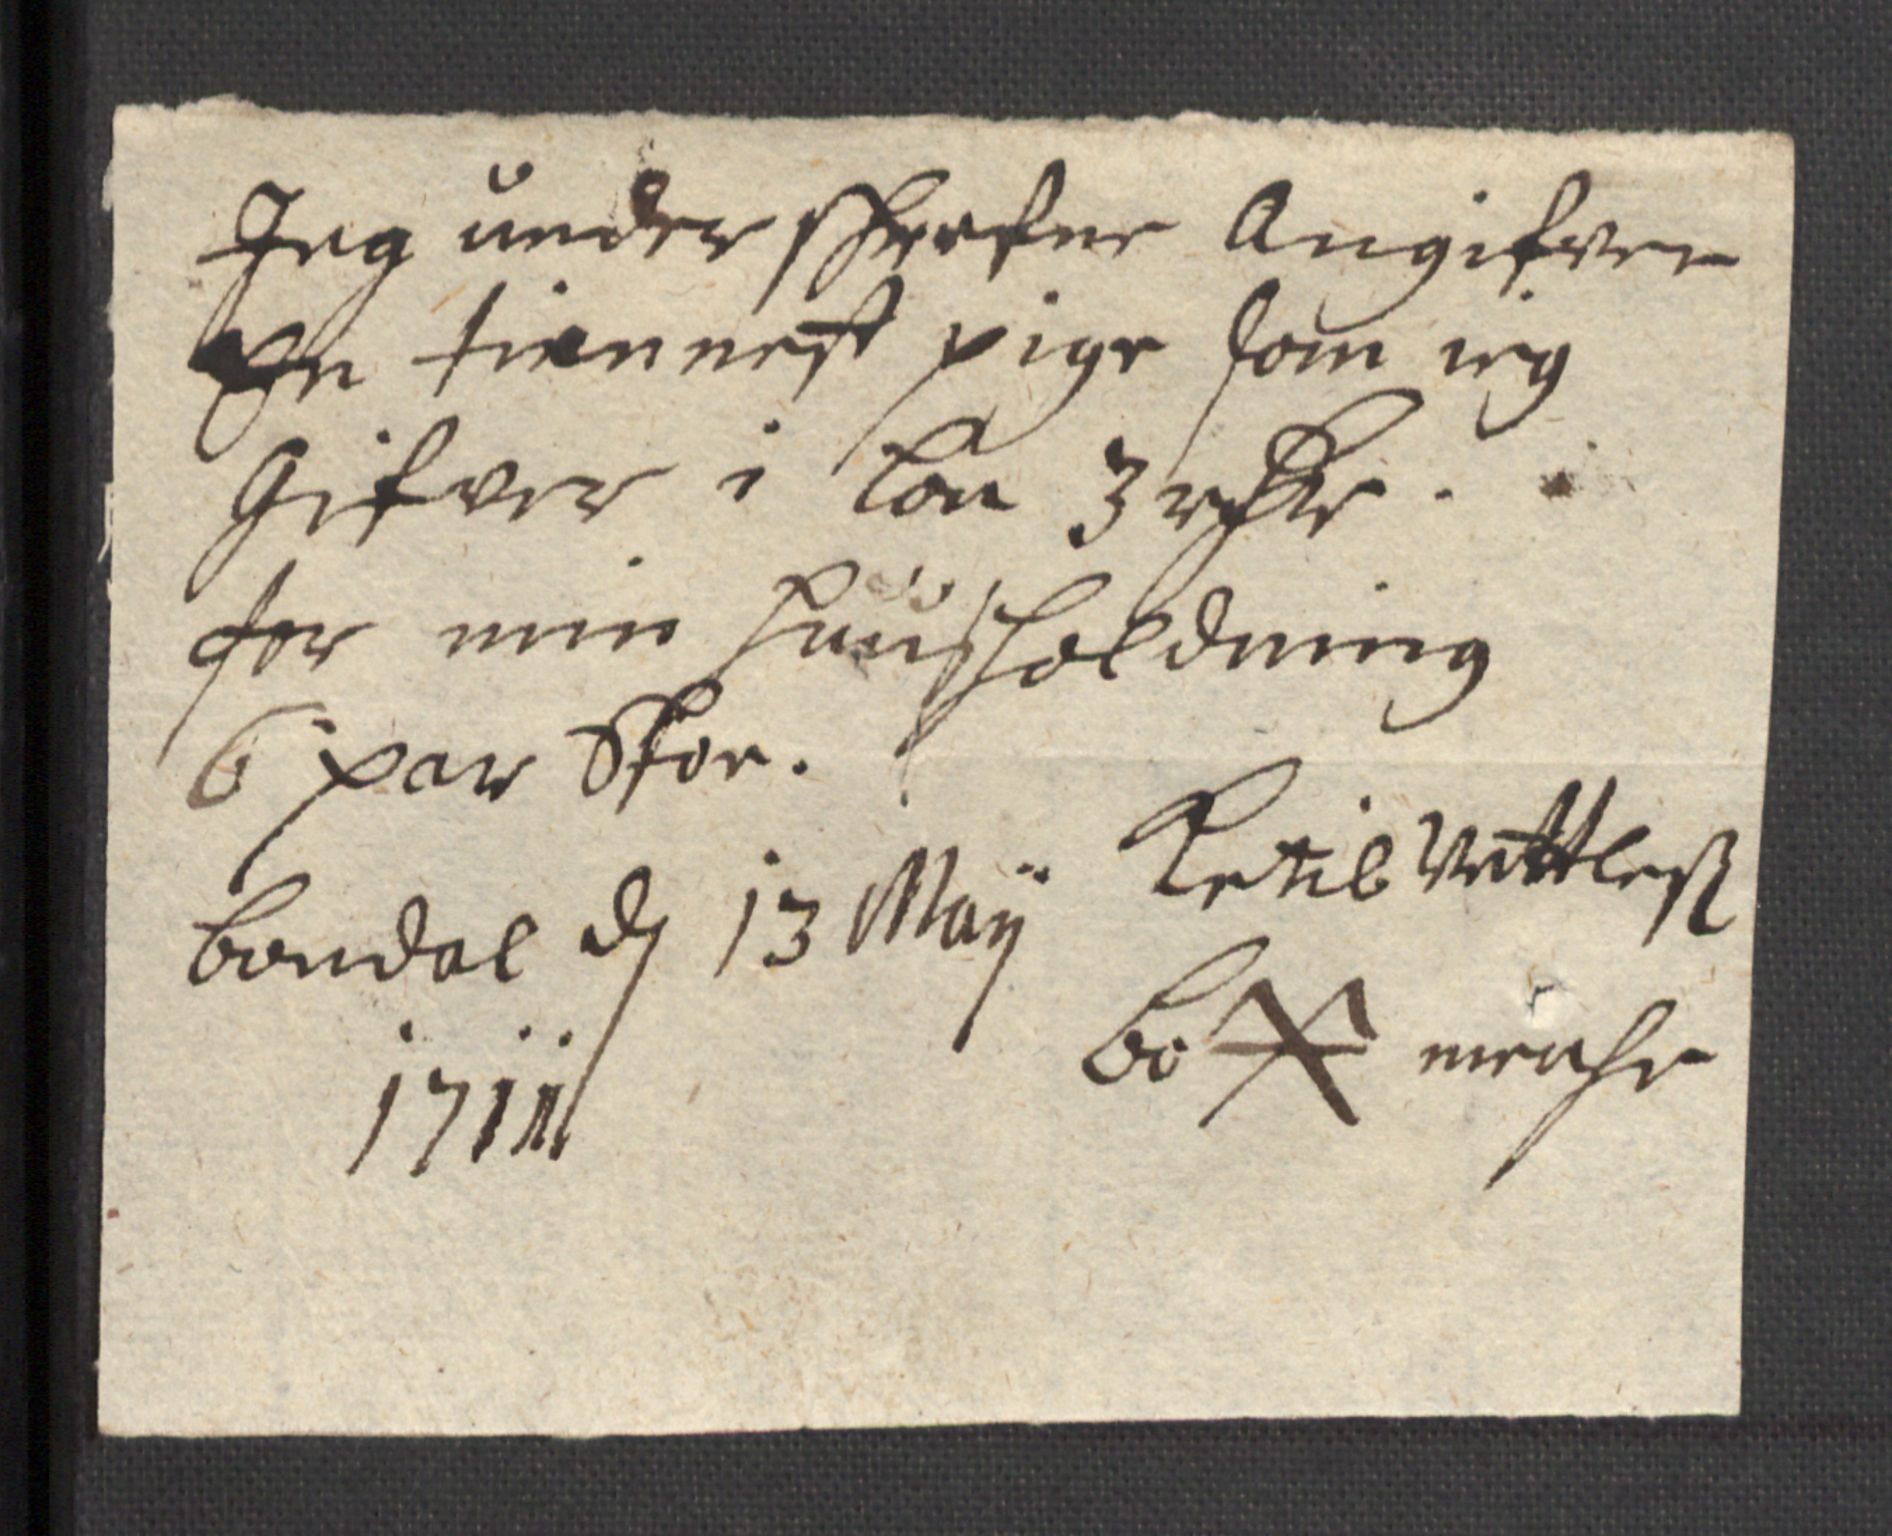 Jeg under skrefne Angifver
En tiennest pige som ieg
Gifver i Løn 3 rdr.
for min huusholdning
6 par Skoe.
Bondal d 13 Maÿ Ketil
1711
bo merche